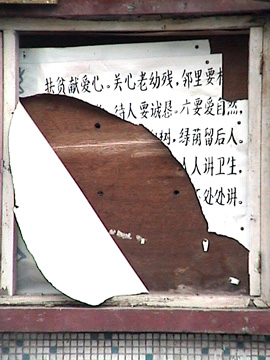 扶贫献爱心。关心老幼残，邻里要
待人要诚恳。六要爱自然，
树，绿荫留后人。
人人讲卫生
不处处讲。